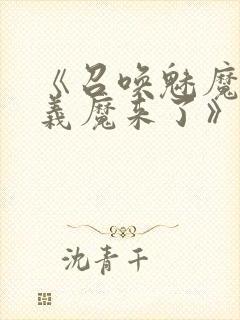 《召唤魅魔
義魔来了》
沈青千